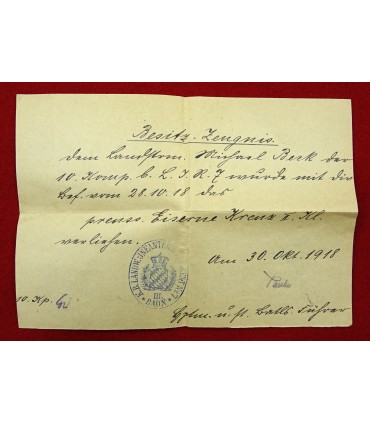 Besitz-Zeugnis.
Dem Landstrm. Michael Beck der
10. Komp. b. L. I. R. 7 wurde mit Div
Bef. vom 28.10.18 das
preuss. Eiserne Kreuz 2. Kl.
verliehen.
Am 30. Okt. 1918
K.B. LANDW. INFANTERIE
III.
BAON
10. Kp.
Hptm. u. st. Batls. Führer